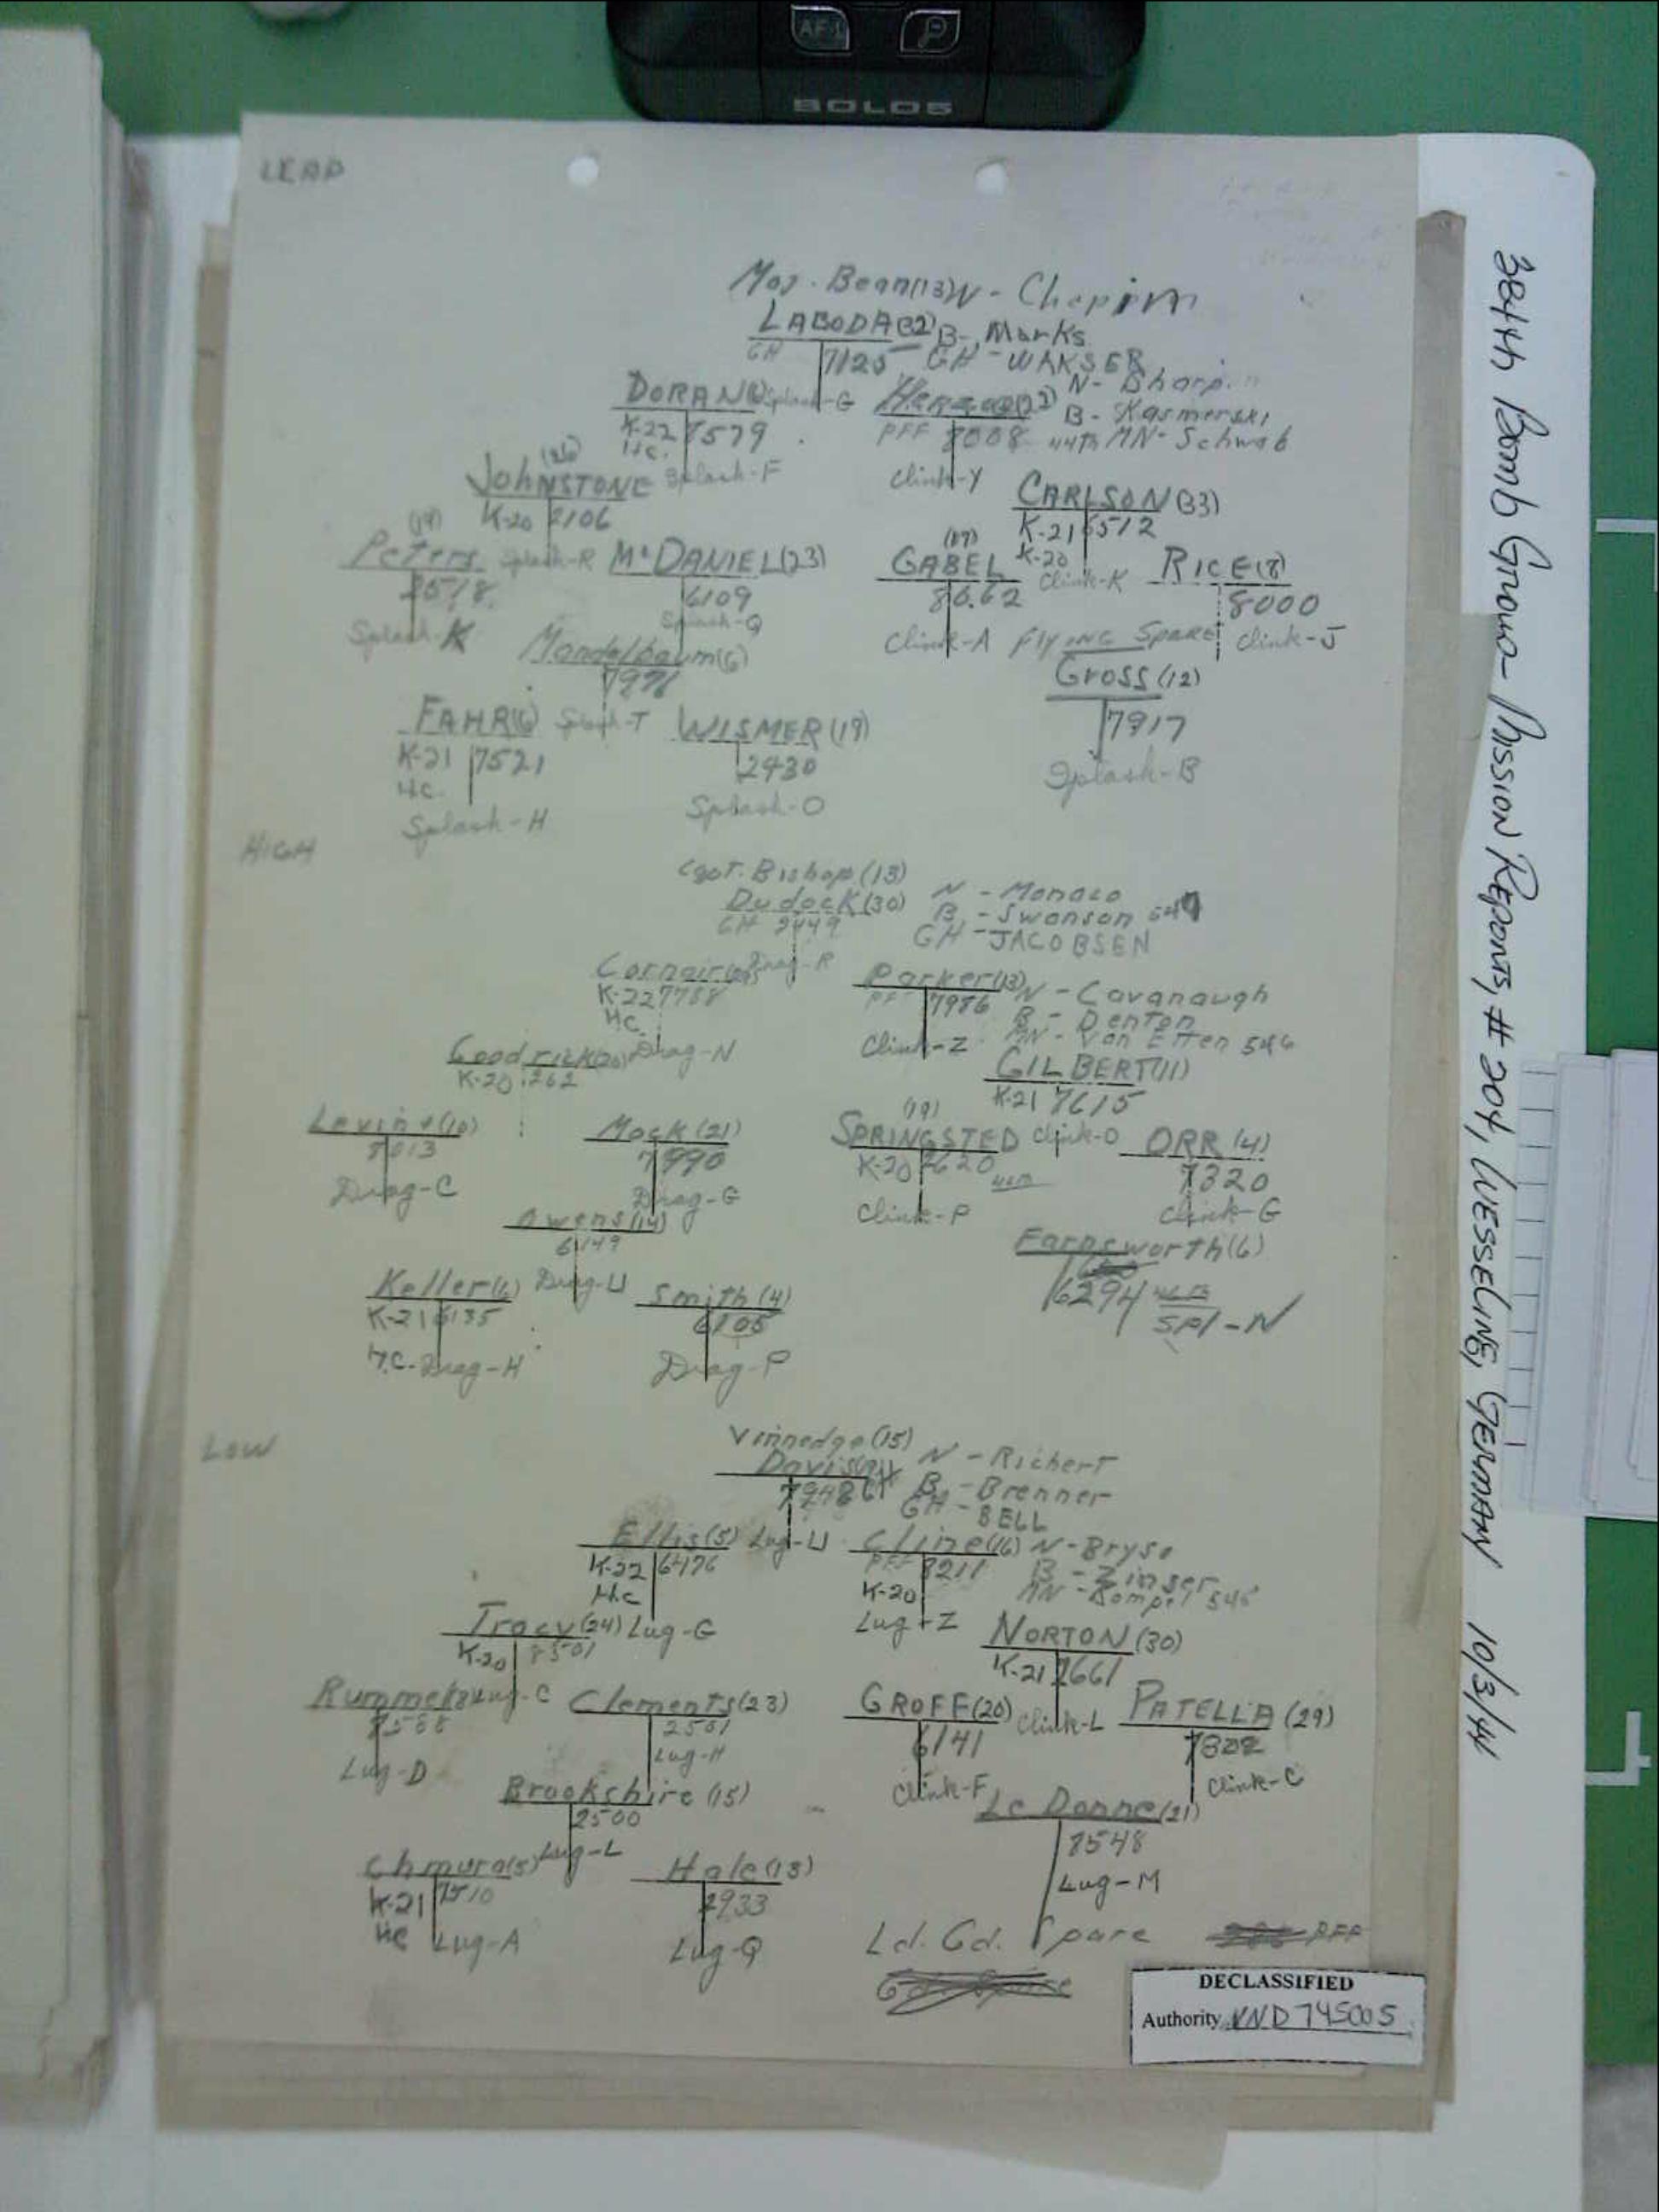 AF-L
SOLOS
LEAD
Maj. Bean(13) N - Chapin
LABODA(32) B- Marks
GH 7125 GH - WAKSER
DORAN Splash-G Herzog(22) N- Sharpin
K-22 7579 B- Kasmerski
H.C. PFF 8008 44TH MN- Schwab
JOHNSTONE (26) Splash-F Clink-Y CARLSON(33)
K-20 2106 K-21 6512
Peters (19) Splash-R McDANIEL(23) GABEL (17) K-20 Clink-K RICE(8)
6109 8662 8000
Splash-K Splash-Q Clink-A FLYING SPARE Clink-J
Mandelbaum(6) GROSS(12)
7976 7917
FAHR(6) Splash-T WISMER(19)
K-21 7521 2930 Splash-B
H.C.
Splash-H Splash-O
HIGH
Capt. Bishop(13) N - Monaco
Dudock(30) B - Swanson
GH 9449 GH - JACOBSEN
Cornair Drag-R Parker(13) N - Cavanaugh
K-22 7758 PFF 7986 B - Denton
H.C. MN - Van Etten 546
Goodrick(20) Drag-N Clink-Z GILBERT(11)
K-20 262 K-21 7615
Levin (10) Mock(21) SPRINGSTED (19) Clink-O ORR(4)
7990 K-20 7320
Drag-C Drag-G Clink-P Clink-G
Owens(14) Farnsworth(6)
6149 6294
Keller(6) Drag-U Smith(4) SPL-N
K-21 6135 6105
H.C. Drag-H Drag-P
LOW
Vinnedge(15) N - Richert
Davis B - Brenner
GH - BELL
Ellis(5) Lug-U Cline(16) N - Bryso
K-22 6476 PFF 8211 B - Zinser
H.C K-20 MN - Rompel 545
Tracy(24) Lug-G Lug-Z NORTON(30)
K-20 8501 K-21 7661
Rummel Lug-C Clements(23) GROFF(20) Clink-L PATELLA(29)
2501 6141 7802
Lug-D Lug-H Clink-F Clink-C
Brookshire(15) Le Donne(21)
2500 8548
Chmura(5) Lug-L Hale(13) Lug-M
K-21 7510 2933
HC Lug-A Lug-Q Ld. Gd. Spare PFF
DECLASSIFIED
Authority NND 745005
384th Bomb Group - Mission Reports, # 204, WESSELING, GERMAN 10/3/44